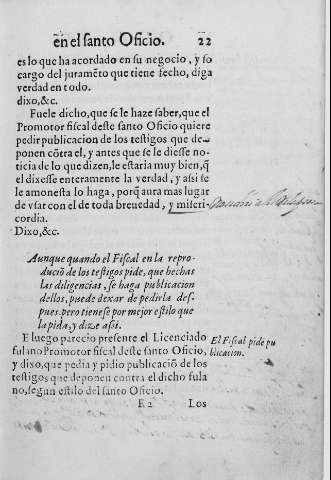 en el santo Oficio. 22
es lo que ha acordado en su negocio, y so
cargo del juramẽto que tiene fecho, diga
verdad en todo.
dixo,&c.
Fuele dicho, que se le haze saber, que el
Promotor fiscal deste santo Oficio quiere
pedir publicacion de los testigos que de-
ponen cõtra el, y antes que se le diesse no-
ticia de lo que dizen, le estaria muy bien, q̃
el dixesse enteramente la verdad, y assi se
le amonesta lo haga, porq̃ aura mas lugar
de vsar con el de toda breuedad, y miseri-
cordia.
Dixo,&c.
Aunque quando el Fiscal en la repro-
duciõ de los testigos pide, que hechas
las diligencias, se haga publicacion
dellos, puede dexar de pedirla des-
pues. pero tienese por mejor estilo que
la pida, y dize assi.
E luego parecio presente el Licenciado
fulano Promotor fiscal deste santo Oficio,
y dixo, que pedia y pidio publicaciõ de los
testigos que deponen contra el dicho fula
no, segun estilo del santo Oficio.
El Fiscal pide pu
blicacion.
Los